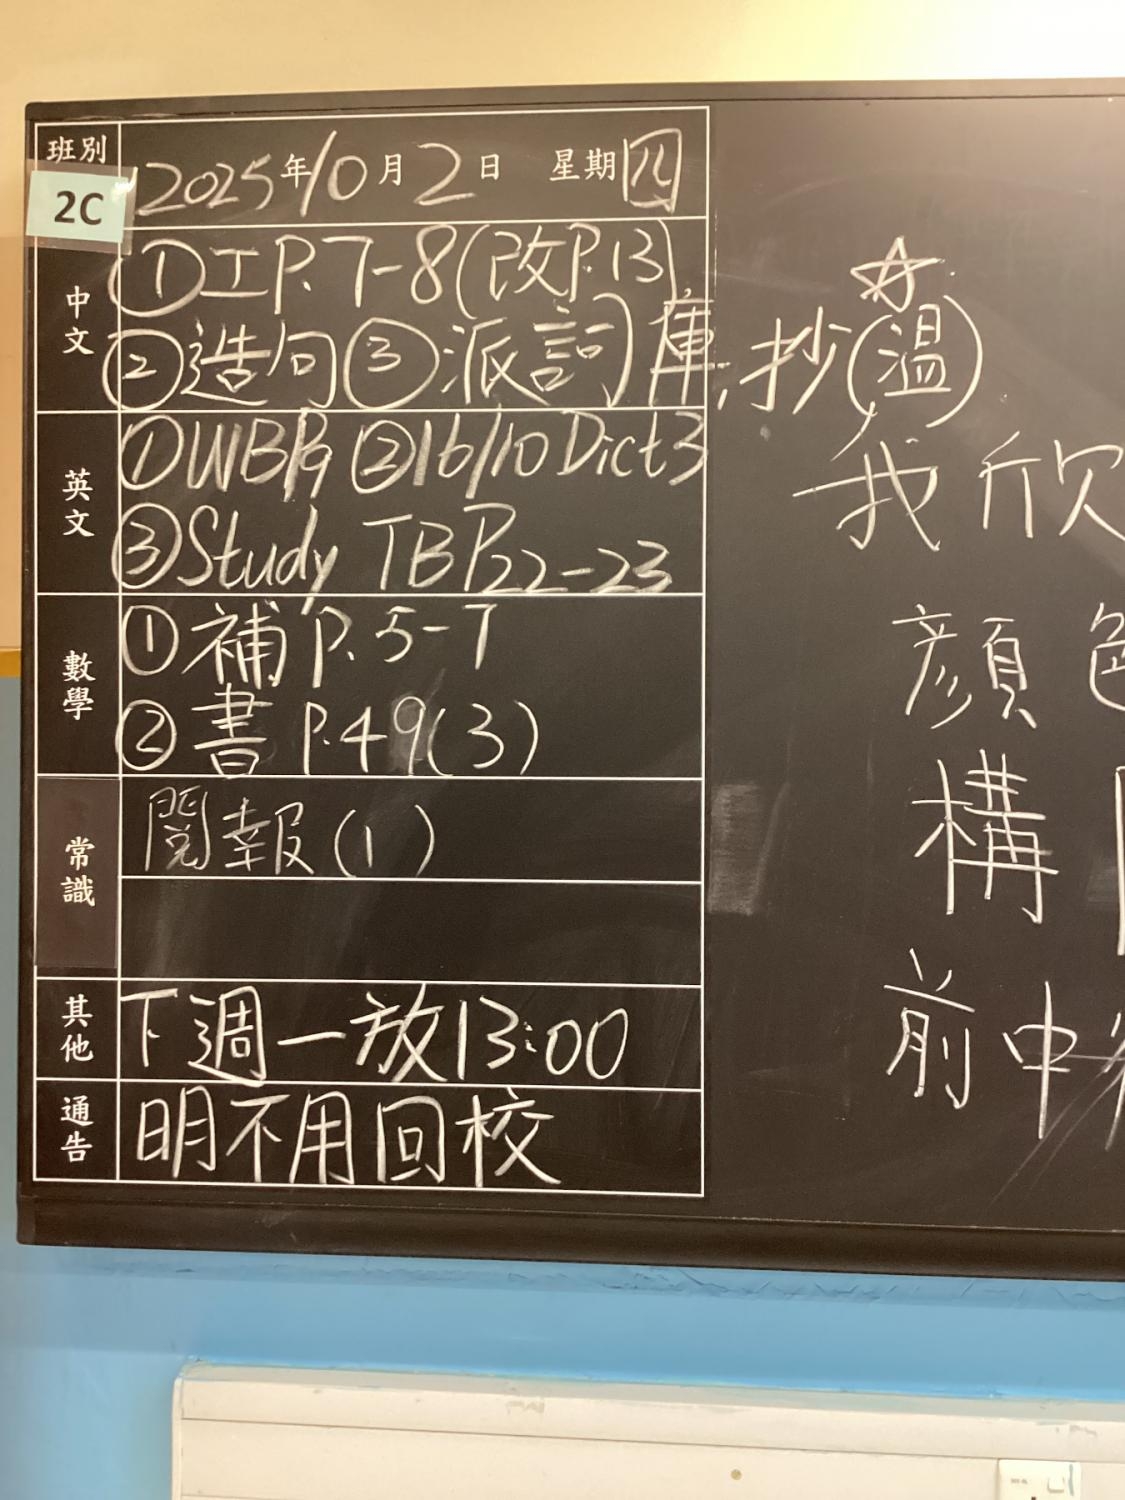 班別
2C
2025年10月2日 星期四
中文
①工P.7-8(改P.13)
②造句③派詞庫,抄(溫)
英文
①WBP9 ②16/10 Dict3
③Study TBP22-23
數學
①補P.5-7
②書P.49(3)
常識
閱報(1)
其他
下週一放13:00
通告
明不用回校
☆
我欣
顏色
構
前中